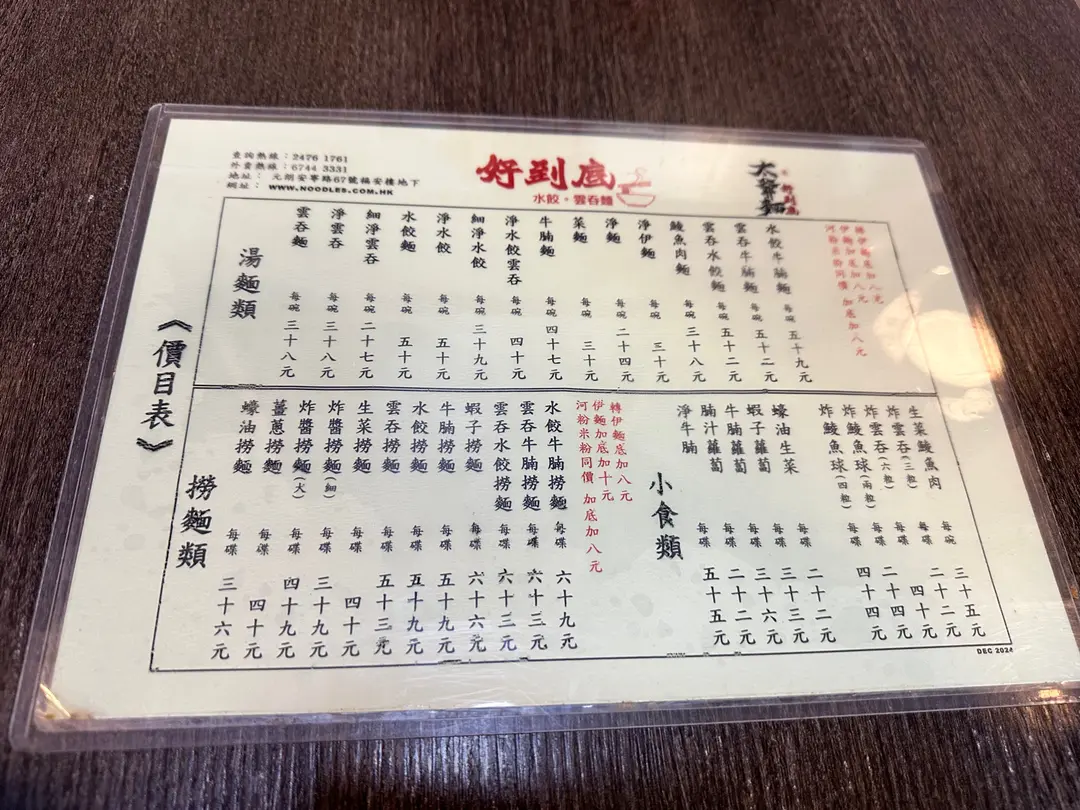 查詢熱線：2476 1761
外賣熱線：6744 3331
地址： 元朗安寧路67號福安樓地下
網址： WWW.NOODLES.COM.HK
好到底
水餃。雲吞麵
好到底
《價目表》
湯麵類
雲吞麵 每碗 三十八元
淨雲吞 每碗 三十八元
細淨雲吞 每碗 二十七元
水餃麵 每碗 五十元
淨水餃 每碗 五十元
細淨水餃 每碗 三十九元
淨水餃雲吞 每碗 四十元
牛腩麵 每碗 四十七元
菜麵 每碗 三十元
淨麵 每碗 二十四元
淨伊麵 每碗 三十元
鯪魚肉麵 每碗 三十八元
雲吞水餃麵 每碗 五十二元
雲吞牛腩麵 每碗 五十二元
水餃牛腩麵 每碗 五十九元
轉伊麵底加八元
伊麵加底加八元
河粉米粉同價 加底加八元
撈麵類
蠔油撈麵 每碟 三十六元
薑蔥撈麵 每碟 四十元
炸醬撈麵(大) 每碟 四十九元
炸醬撈麵(細) 每碟 三十九元
生菜撈麵 每碟 四十元
雲吞撈麵 每碟 五十三元
水餃撈麵 每碟 五十九元
牛腩撈麵 每碟 五十九元
蝦子撈麵 每碟 六十元
雲吞水餃撈麵 每碟 六十三元
雲吞牛腩撈麵 每碟 六十三元
水餃牛腩撈麵 每碟 六十九元
轉伊麵底加八元
伊麵加底加十元
河粉米粉同價 加底加八元
小食類
淨牛腩 每碟 五十五元
腩汁蘿蔔 每碟 二十二元
牛腩蘿蔔 每碟 三十六元
蝦子蘿蔔 每碟 三十三元
蠔油生菜 每碟 二十二元
炸鯪魚球(四粒) 每碟 四十四元
炸鯪魚球(兩粒) 每碟 二十四元
炸雲吞(六粒) 每碟 四十元
炸雲吞(三粒) 每碟 二十二元
生菜鯪魚肉 每碗 三十五元
DEC 2024